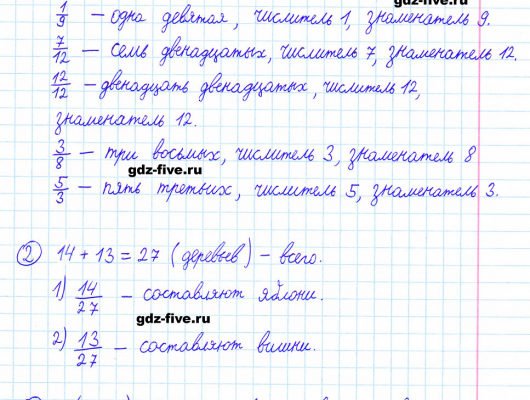 gdz-five.ru
1/9 – одна девятая, числитель 1, знаменатель 9.
7/12 – семь двенадцатых, числитель 7, знаменатель 12.
12/12 – двенадцать двенадцатых, числитель 12,
знаменатель 12.
3/8 – три восьмых, числитель 3, знаменатель 8
gdz-five.ru
5/3 – пять третьих, числитель 5, знаменатель 3.
2 14 + 13 = 27 (деревьев) – всего.
1) 14/27 – составляют яблони.
gdz-five.ru
2) 13/27 – составляют вишни.